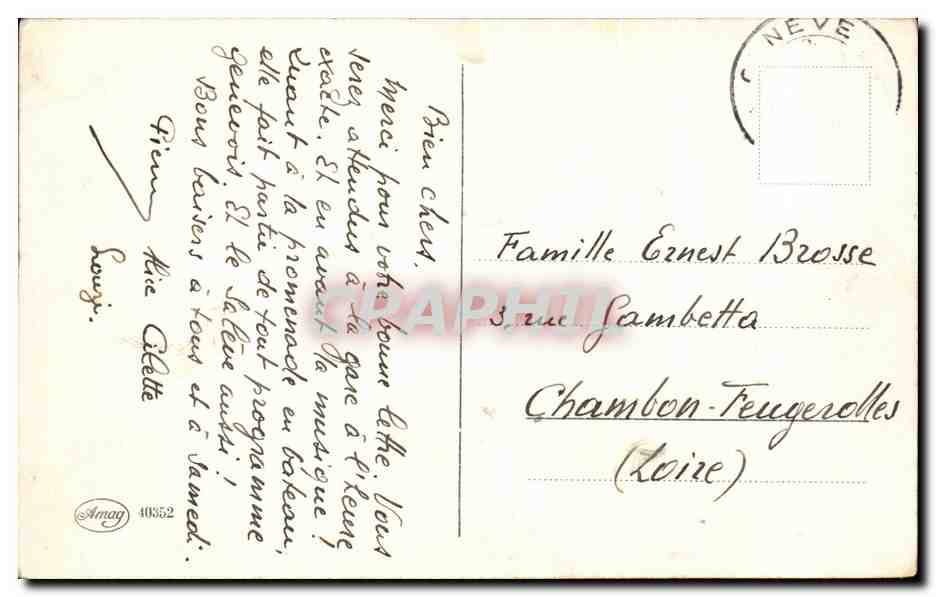 Bien chers.
Merci pour votre bonne lettre. Vous
serez attendus à la gare à l'heure
exacte. Et en avant la musique!
Quant à la promenade en bateau,
elle fait partie de tout programme
genevois. Et le Salève aussi!
Bons baisers à tous et à samedi.
Pierre Alice Cilette
Louzi.
Amag 40352
NEVE
Famille Ernest Brosse
3, rue Gambetta
Chambon-Feugerolles
(Loire)
CRAPHTII